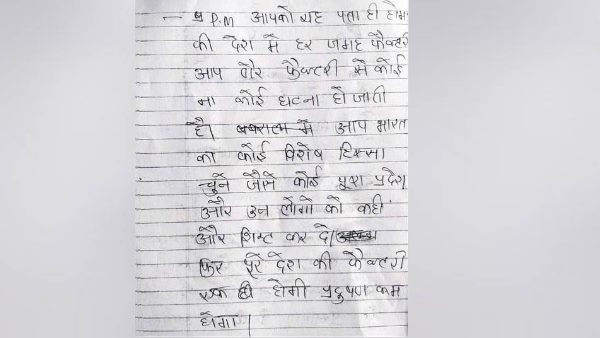 — P.M आपको यह पता ही होगा
की देश में हर जगह फैक्टरी
आप और फैक्टरी से कोई
ना कोई घटना हो जाती
है। आप भारत
का कोई विशेष हिस्सा
चुने जैसे कोई पूरा प्रदेश
और उन लोगो को कही
और शिफ्ट कर दे।
फिर पूरे देश की फैक्टरी
एक ही होगी प्रदुषण कम
होगा।